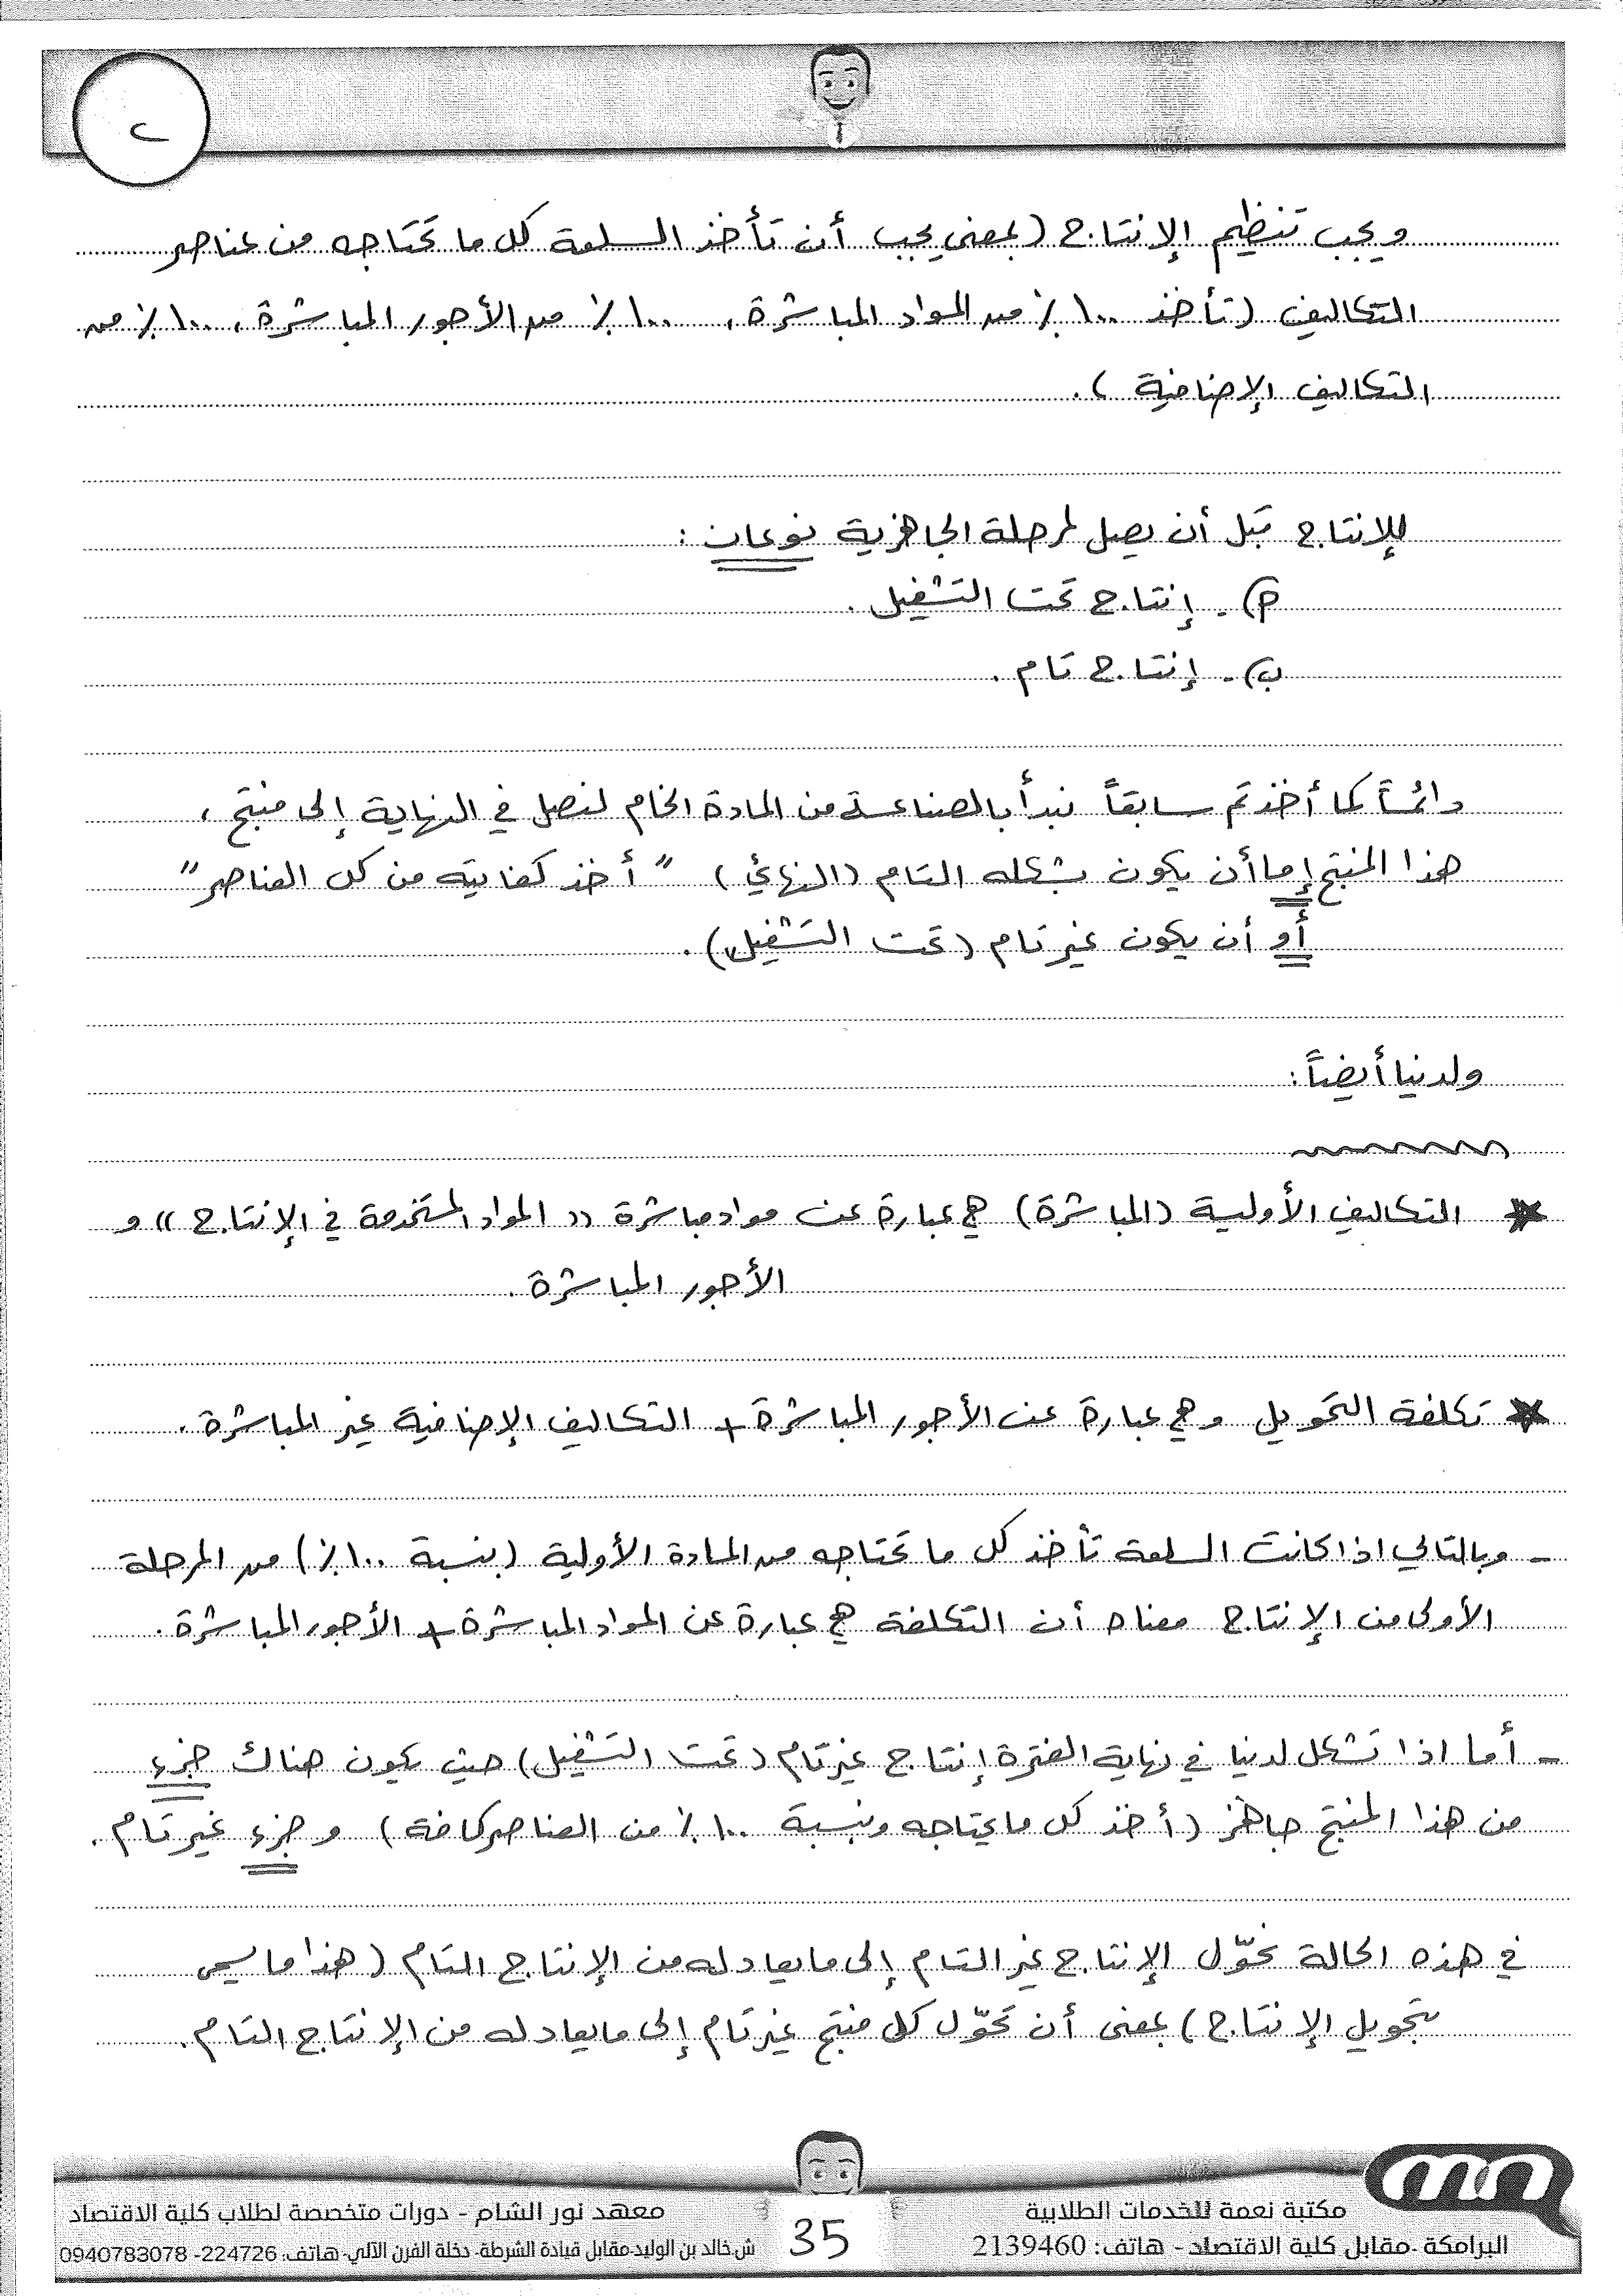 ٢
ويجب تنظيم الإنتاج (بمعنى يجب أن تأخذ السلعة كل ما تحتاجه من عناصر
التكاليف (تأخذ ١٠٠٪ من المواد المباشرة، ١٠٠٪ من الأجور المباشرة، ١٠٠٪ من
التكاليف الإضافية).
للإنتاج قبل أن يصل لمرحلة الجاهزية نوعان:
أ)- إنتاج تحت التشغيل.
ب)- إنتاج تام.
دائماً كما أخذتم سابقاً نبدأ بالصناعة من المادة الخام لنصل في النهاية إلى منتج،
هذا المنتج إما أن يكون بشكله التام (النهائي) "أخذ كفايته من كل العناصر"
أو أن يكون غير تام (تحت التشغيل).
ولدينا أيضاً:
* التكاليف الأولية (المباشرة) هي عبارة عن مواد مباشرة ((المواد المستخدمة في الإنتاج)) و
الأجور المباشرة.
* تكلفة التحويل وهي عبارة عن الأجور المباشرة + التكاليف الإضافية غير المباشرة.
- وبالتالي اذا كانت السلعة تأخذ كل ما تحتاجه من المادة الأولية (بنسبة ١٠٠٪) من المرحلة
الأولى من الإنتاج معناه أن التكلفة هي عبارة عن المواد المباشرة + الأجور المباشرة.
- أما اذا تشكل لدينا في نهاية الفترة إنتاج غير تام (تحت التشغيل) حيث يكون هناك جزء
من هذا المنتج جاهز (أخذ كل ما يحتاجه وبنسبة ١٠٠٪ من العناصر كافة) وجزء غير تام.
في هذه الحالة نحوّل الإنتاج غير التام إلى ما يعادله من الإنتاج التام (هذا ما يسمى
بتحويل الإنتاج) بمعنى أن نحوّل كل منتج غير تام إلى ما يعادله من الإنتاج التام.
مكتبة نعمة للخدمات الطلابية
البرامكة -مقابل كلية الاقتصاد - هاتف: 2139460
35
معهد نور الشام - دورات متخصصة لطلاب كلية الاقتصاد
ش.خالد بن الوليد-مقابل قيادة الشرطة- دخلة الفرن الآلي- هاتف: 224726- 0940783078